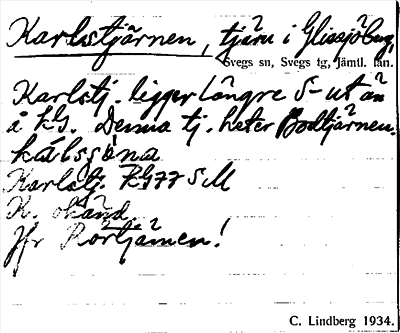 Karlstjärnen, tjärn i Glissjöberg,
Svegs sn, Svegs tg, Jämtl. län.
Karlstj. ligger längre S- ut än
å kg. Denna tj. heter Bodtjärnen.
Karlstj.
K. okänd.
Jfr Rörtjärnen!
C. Lindberg 1934.